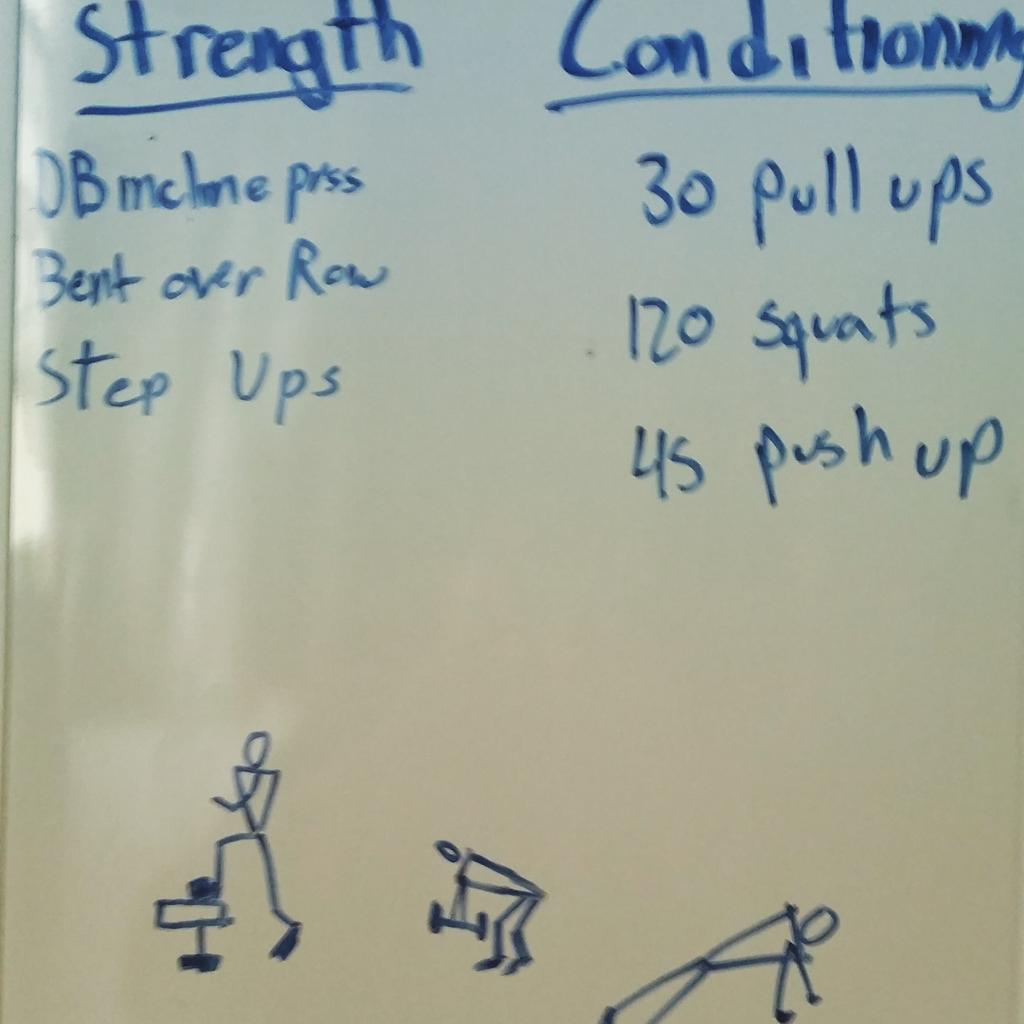 Strength
Conditioning
DB incline prss
30 pull ups
Bent over Row
120 squats
Step Ups
45 push up